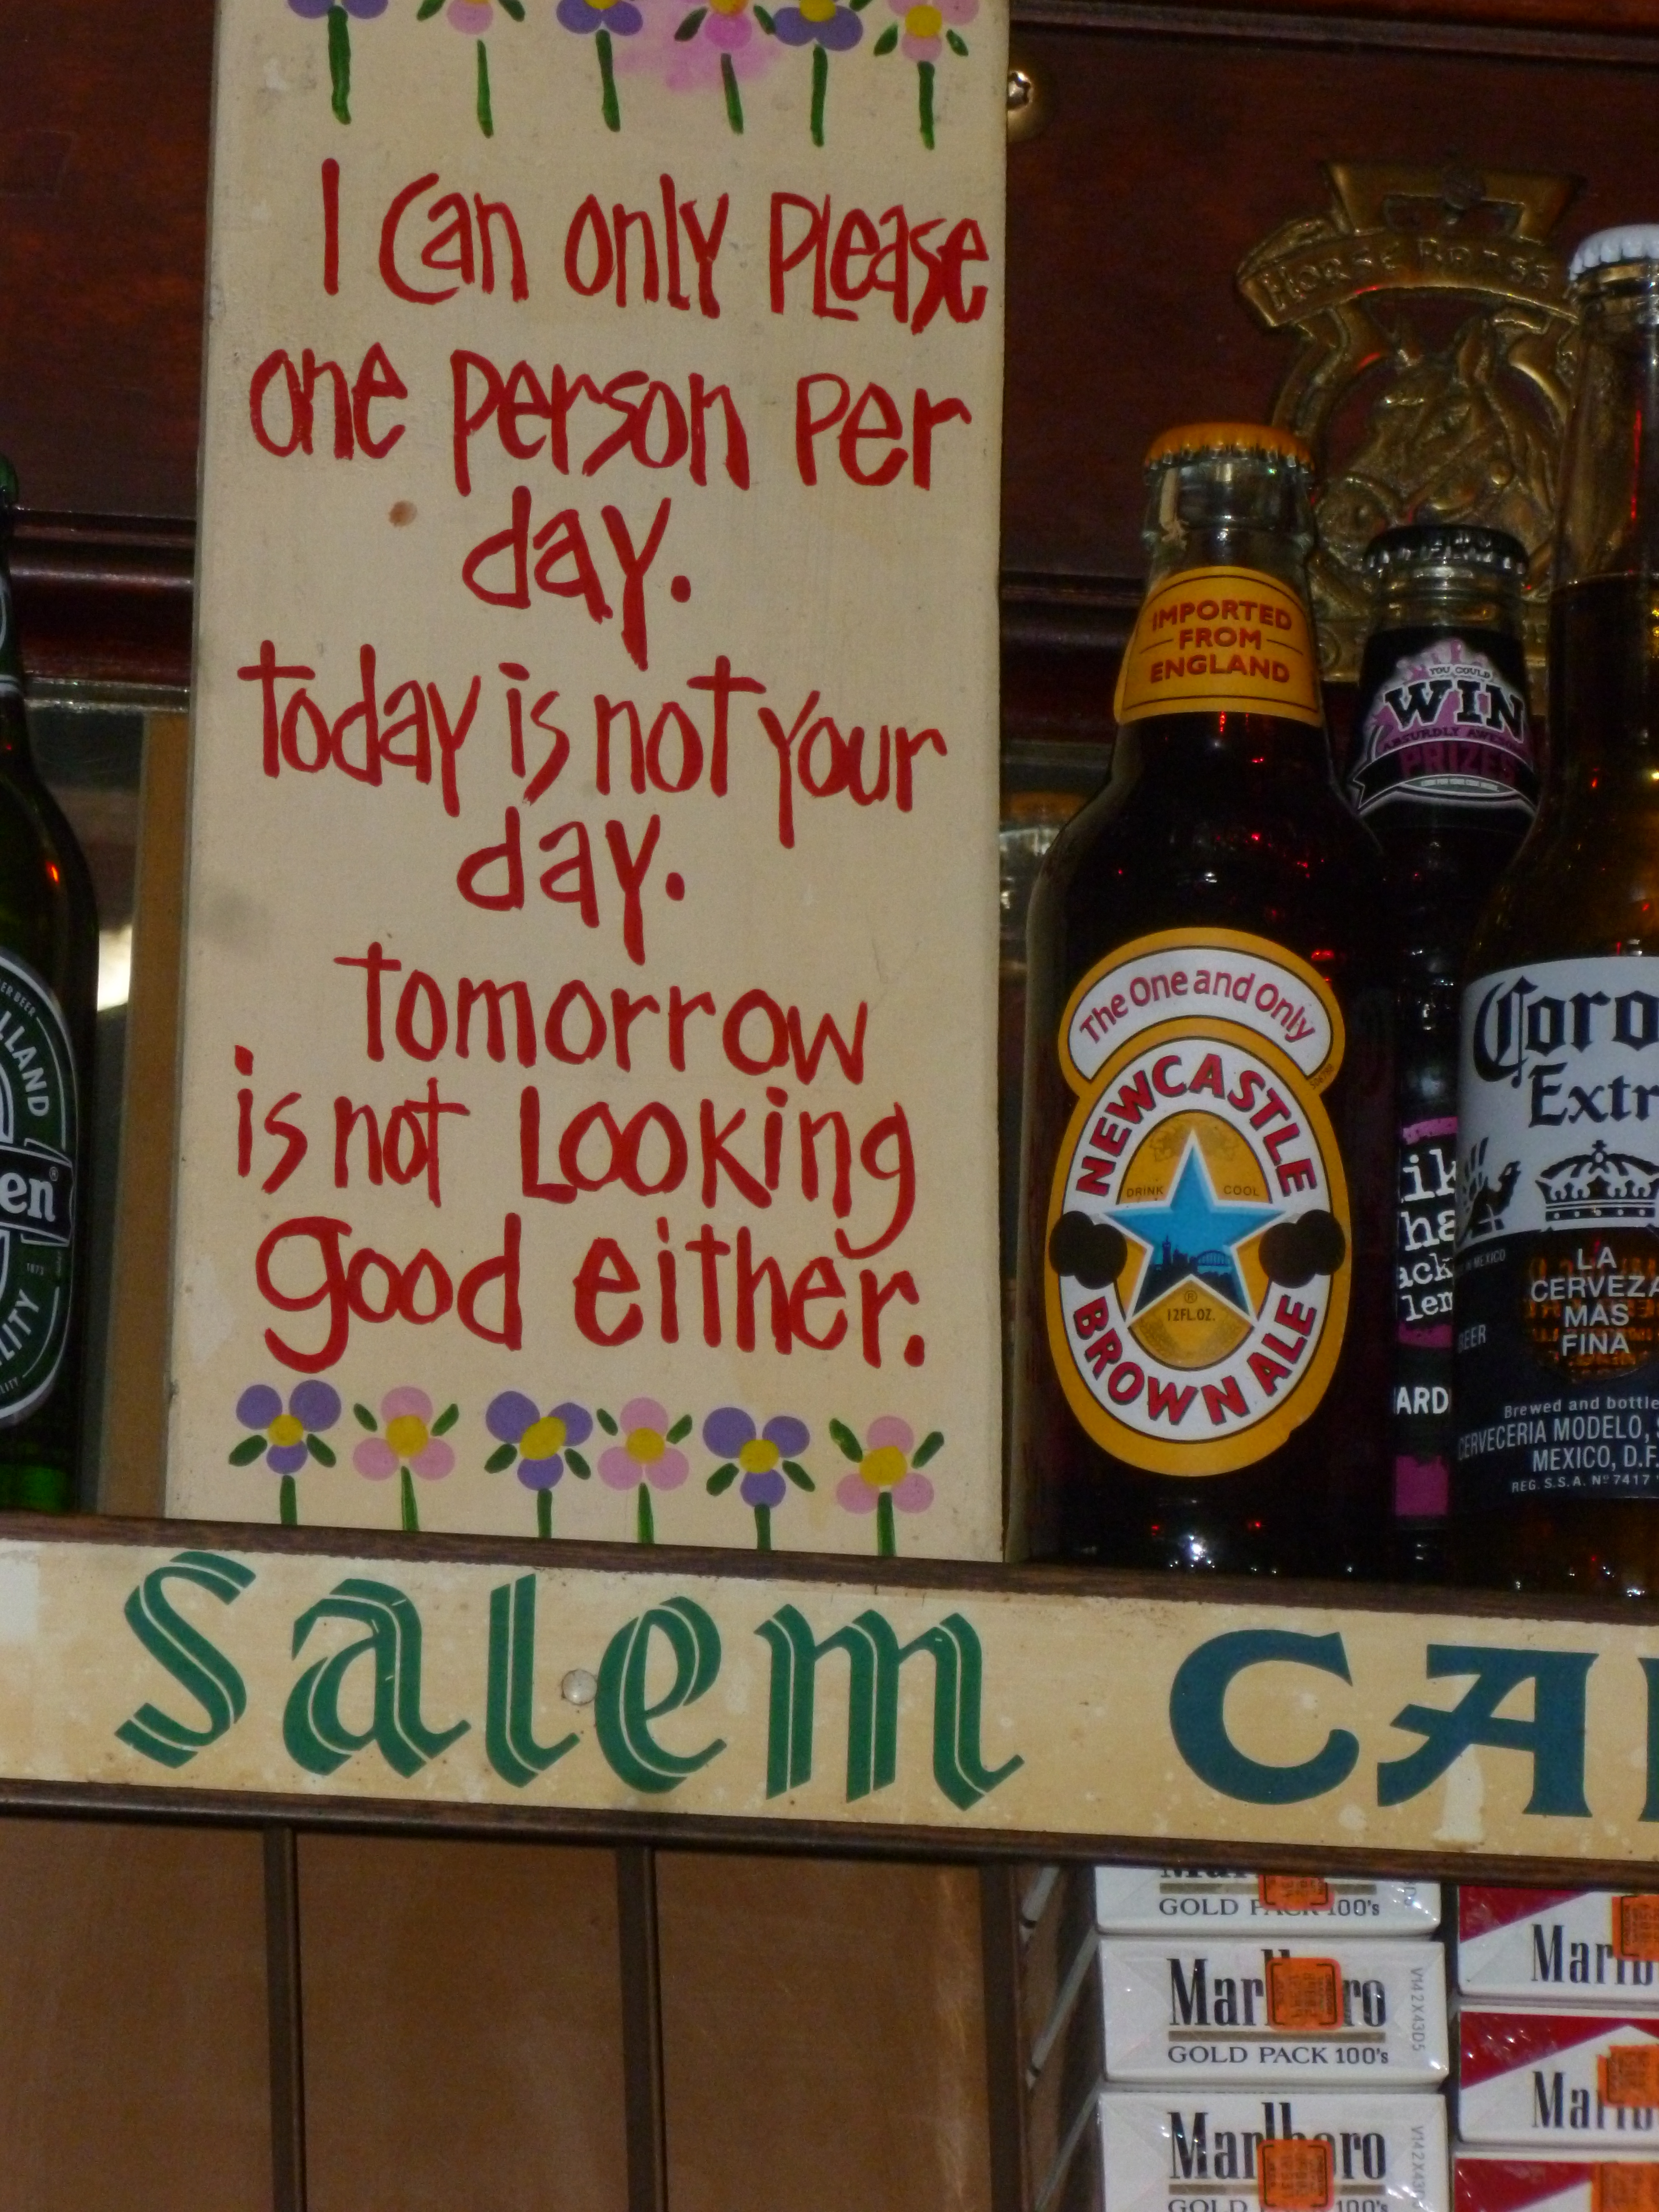 I Can only Please
one person Per
day.
today is not your
day.
tomorrow
is not Looking
good either.
HORSE BRASS
IMPORTED
FROM
ENGLAND
The One and Only
NEWCASTLE
DRINK COOL
12FL.OZ.
BROWN ALE
YOU COULD
WIN
ABSURDLY AWESOME
PRIZES
LLAND
en®
1873
LITY
ik
ha
ack
lem
ARD
Coro
Extr
LA
CERVEZA
MAS
FINA
BEER
Brewed and bottle
CERVECERIA MODELO, S
MEXICO, D.F.
REG. S.S.A. Nº 7417
Salem CA
GOLD PACK 100's
Marlboro
GOLD PACK 100's
V142X43D5
Marlboro
GOLD PACK 100's
Marlb
Marlb